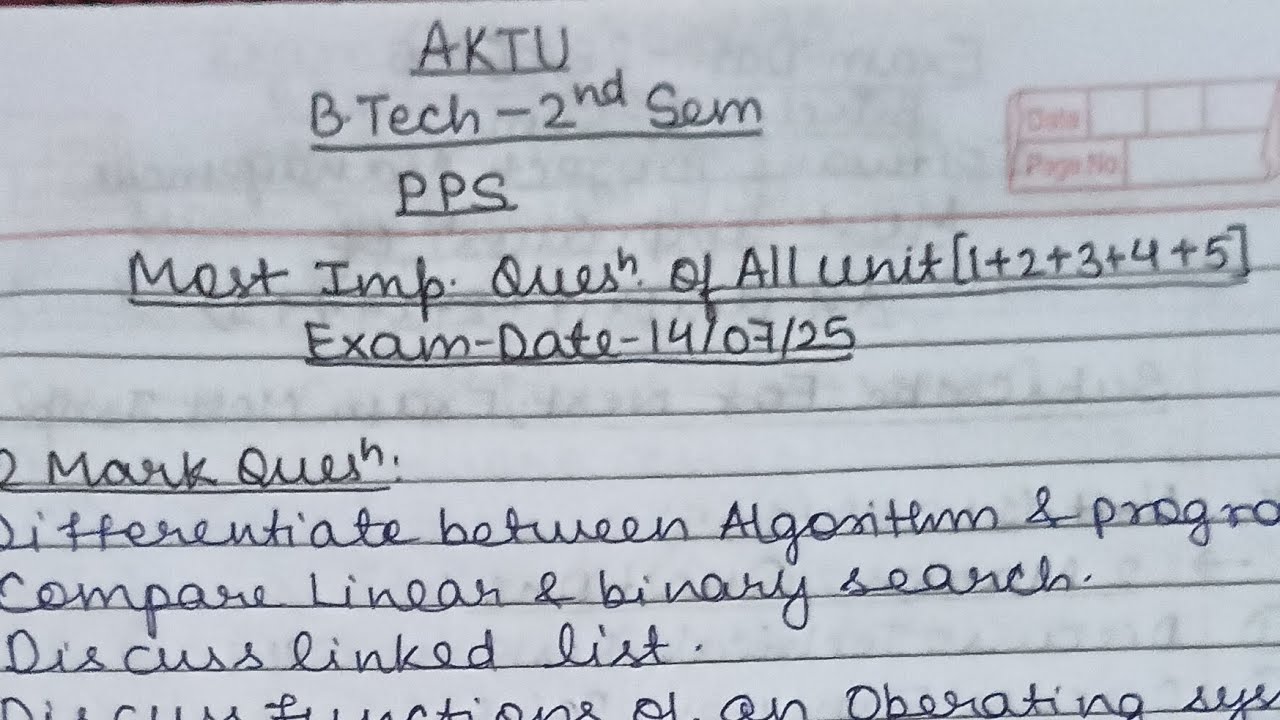 AKTU
B.Tech-2nd Sem
PPS
Date
Page No
Most Imp. Quesn. Of All Unit [1+2+3+4+5]
Exam-Date-14/07/25
2 Mark Quesn.
Differentiate between Algorithm & progra
Compare Linear & binary search.
Discuss linked list.
Discuss functions of an Operating sys